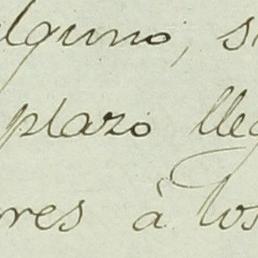 alguno, s
plazo lleg
res à los